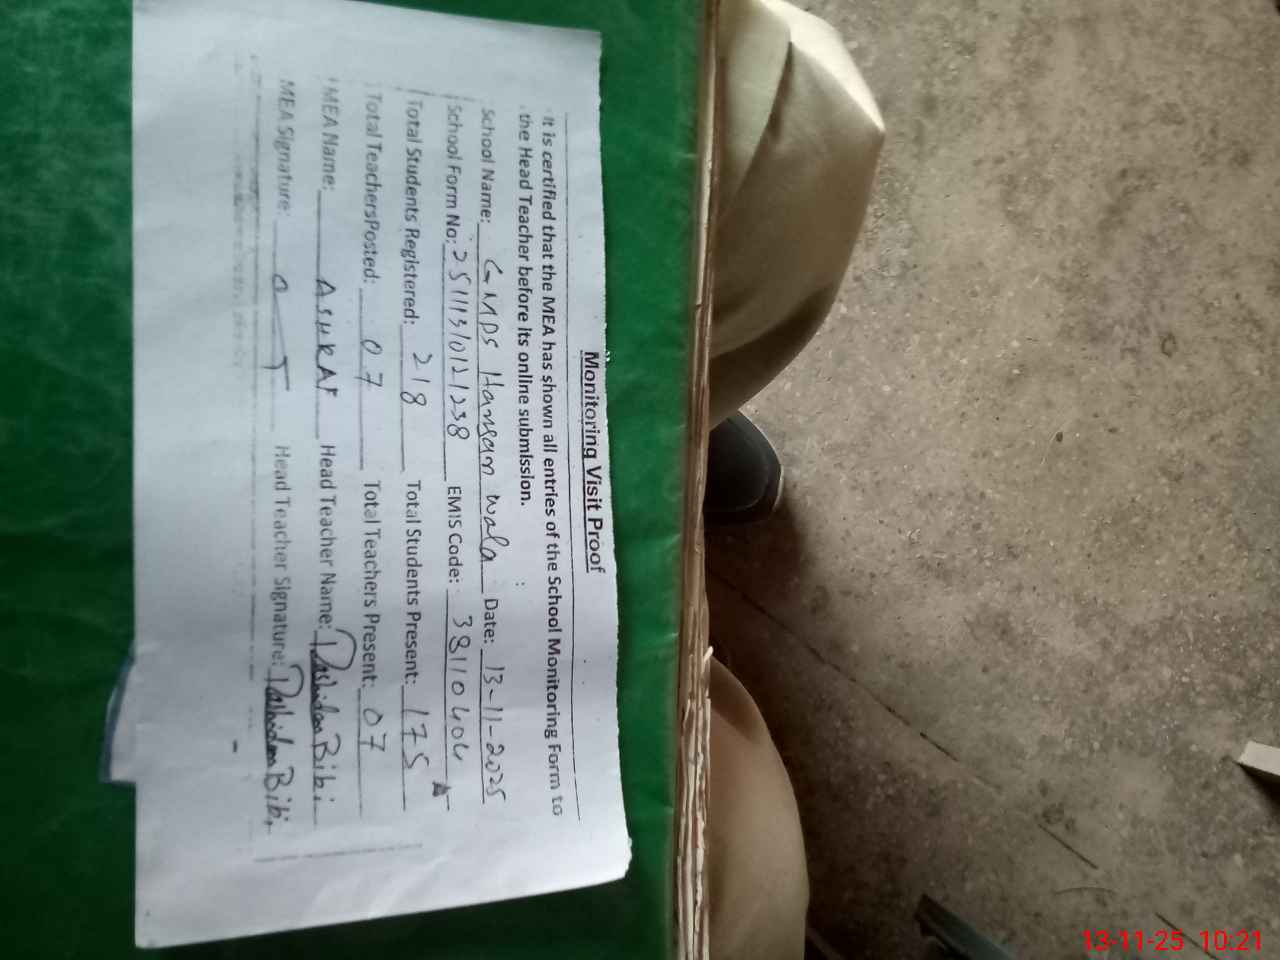 Monitoring Visit Proof
It is certified that the MEA has shown all entries of the School Monitoring Form to
the Head Teacher before its online submission.
School Name: GMPS Hassan wala Date: 13-11-2025
School Form No: 25111310121238 EMIS Code: 38110404
Total Students Registered: 218 Total Students Present: 175
Total Teachers Posted: 07 Total Teachers Present: 07
MEA Name: ASHRAF Head Teacher Name: Rashidan Bibi
MEA Signature: Head Teacher Signature: Rashidan Bibi
13-11-25 10:21